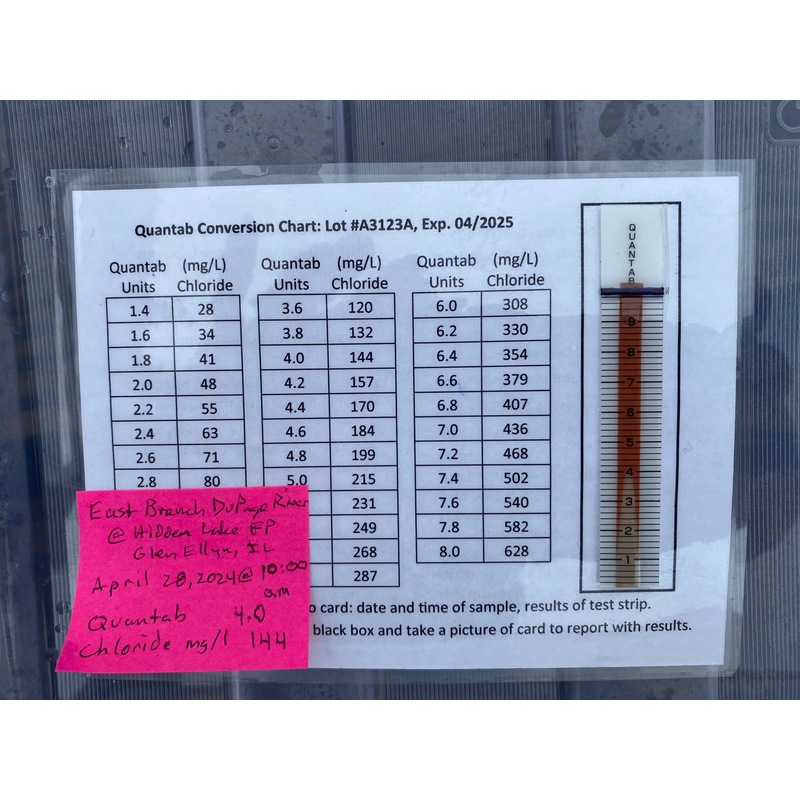 Quantab Conversion Chart: Lot #A3123A, Exp. 04/2025
Quantab Units (mg/L) Chloride
1.4 28
1.6 34
1.8 41
2.0 48
2.2 55
2.4 63
2.6 71
2.8 80
Quantab Units (mg/L) Chloride
3.6 120
3.8 132
4.0 144
4.2 157
4.4 170
4.6 184
4.8 199
5.0 215
231
249
268
287
Quantab Units (mg/L) Chloride
6.0 308
6.2 330
6.4 354
6.6 379
6.8 407
7.0 436
7.2 468
7.4 502
7.6 540
7.8 582
8.0 628
QUANTAB
9
8
7
6
5
4
3
2
1
East Branch DuPage River
@ Hidden Lake FP
Glen Ellyn, IL
April 28, 2024 @ 10:00
am
Quantab 4.0
Chloride mg/l 144
o card: date and time of sample, results of test strip.
black box and take a picture of card to report with results.